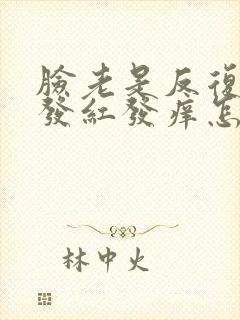 臉老是反復
發紅發痒怎
林中火